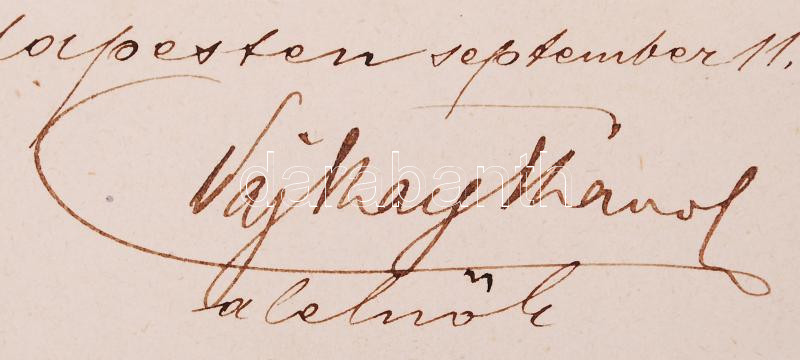 dapesten september 11.
Vajkay Károl
alelnök
darabanth